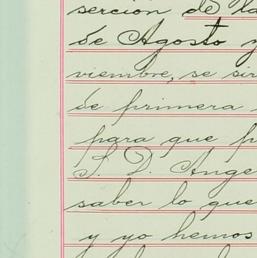 serción de la
de Agosto y
viembre, se sir
de primera
para que p
S. D. Ange
saber lo que
y yo hemos